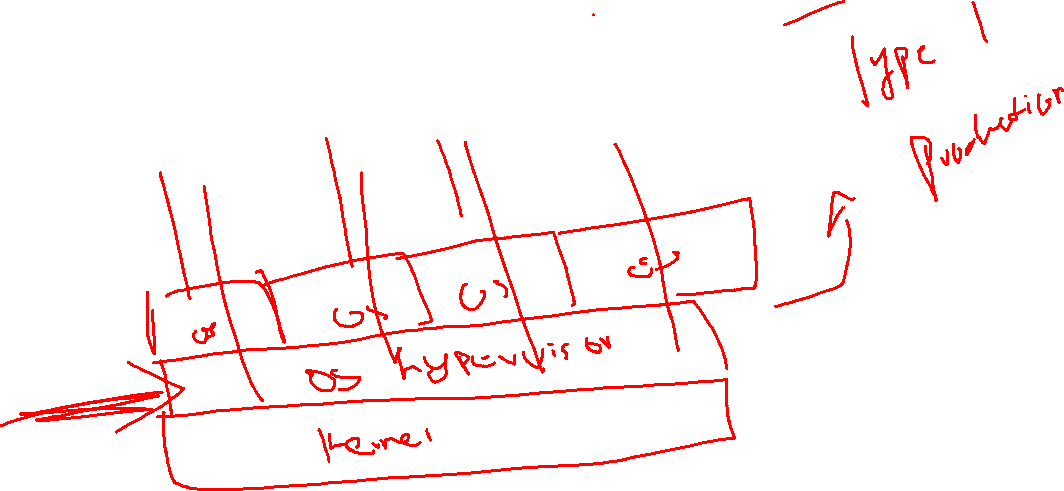 Type 1
Production
os os os os
os hypervisor
kernel